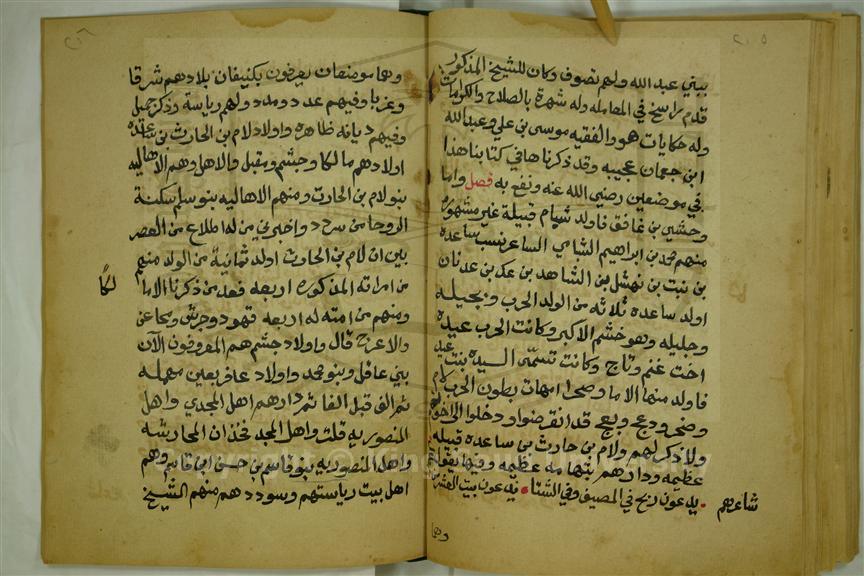 ٢٠٥
ببني عبد الله ولهم تصوف وكان للشيخ المذكور
قدم راسخ في المعامله وله شهرة بالصلاح والكرامات
وله حكايات هو والفقيه موسى بن علي وعبد الله
ابن جعمان عجيبه وقد ذكرناها في كتابنا هذا
في موضعين رضي الله عنه ونفع به فصل واما
وحشي بن غافق فاولد شيام قبيلة غير مشهوره
منهم محمد بن ابراهيم الشامي الساعر نسب ساعده
بن نبت بن نهشل بن الشاهد بن عك بن عدنان
اولد ساعده ثلاثه من الولد الحرب وبجيله
وجليله وهو خشم الاكبر وكانت الحرب عبده
اخت غنم وتاج وكانت تسمى السيده بنت عيد
فاولد منها الاما وصحا امهات بطون الحرب لام
وضحى ودعج وبعج قد انقرضوا ودخلوا الى اخوتهم
ولا ذكر لهم ولام بن حارث بن ساعدة قبيله
عظيمه ودارهم بتهامه عظيمه وفيها يقول
شاعرهم يدعون ربح في المصيف وفي الشتا يدعون بيت
وهما
٢٠٦
وهما موضعان يعرفون بكنيفان بلادهم شرقا
وغربا وفيهم عدد ومدد ولهم رياسة وذكر جميل
وفيهم ديانه ظاهره واولاد لام بن الحارث بن ساعده
اولادهم مالكا وجشم ومقبل والاهل وهم الاهاليه
بنو لام بن الحارث ومنهم الاهاليه بنو سليم سكنة
الروحا من سردد واخبرني من له اطلاع من العصر
بين ان لام بن الحارث اولد ثمانية من الولد منهم
من امراته المذكوره اربعه فعد من ذكرنا الاما لكا
ومنهم من امته له اربعه فهود وجرش ومجاعن
والاعرج قال واولاد جشم هم المعروفون الآن
بني عاقل وبنو محمد واولاد عافر بعين مهمله
ثم الف قبل الفا ثم دارهم اهل المجدي واهل
المنصوريه قلت واهل المجد فخذان المحارشه
واهل المنصوريه بنو قاسم بن حسن ابي قاسم وهم
اهل بيت رياستهم وسوددهم منهم الشيخ